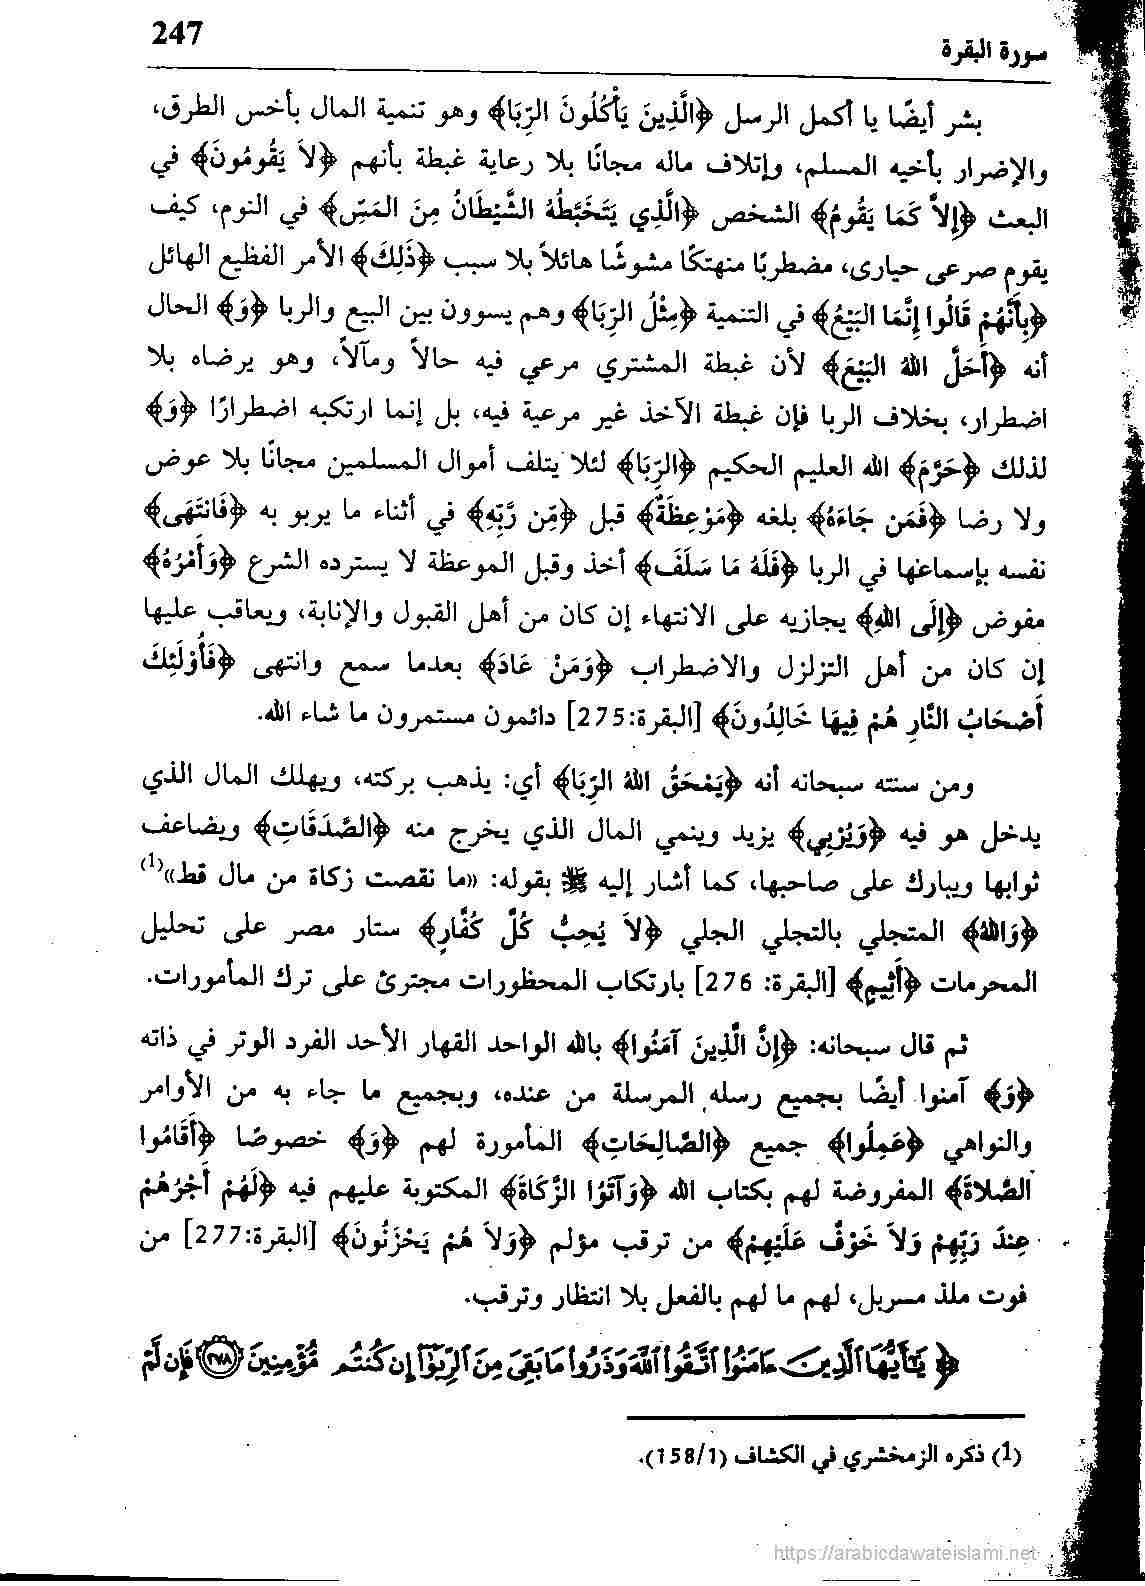 سورة البقرة
247
بشر أيضًا يا أكمل الرسل ﴿الَّذِينَ يَأْكُلُونَ الرِّبَا﴾ وهو تنمية المال بأخس الطرق،
والإضرار بأخيه المسلم، وإتلاف ماله مجانًا بلا رعاية غبطة بأنهم ﴿لاَ يَقُومُونَ﴾ في
البعث ﴿إِلاَّ كَمَا يَقُومُ﴾ الشخص ﴿الَّذِي يَتَخَبَّطُهُ الشَّيْطَانُ مِنَ المَسِّ﴾ في النوم، كيف
يقوم صرعى حيارى، مضطربًا منهتكًا مشوشًا هائلاً بلا سبب ﴿ذَلِكَ﴾ الأمر الفظيع الهائل
﴿بِأَنَّهُمْ قَالُوا إِنَّمَا البَيْعُ﴾ في التنمية ﴿مِثْلُ الرِّبَا﴾ وهم يسوون بين البيع والربا ﴿وَ﴾ الحال
أنه ﴿أَحَلَّ اللهُ البَيْعَ﴾ لأن غبطة المشتري مرعي فيه حالاً ومآلاً، وهو يرضاه بلا
اضطرار، بخلاف الربا فإن غبطة الآخذ غير مرعية فيه، بل إنما ارتكبه اضطرارًا ﴿وَ﴾
لذلك ﴿حَرَّمَ﴾ الله العليم الحكيم ﴿الرِّبَا﴾ لئلا يتلف أموال المسلمين مجانًا بلا عوض
ولا رضا ﴿فَمَن جَاءَهُ﴾ بلغه ﴿مَوْعِظَةٌ﴾ قبل ﴿مِّن رَّبِّهِ﴾ في أثناء ما يربو به ﴿فَانتَهَى﴾
نفسه بإسماعها في الربا ﴿فَلَهُ مَا سَلَفَ﴾ أخذ وقبل الموعظة لا يسترده الشرع ﴿وَأَمْرُهُ﴾
مفوض ﴿إِلَى اللهِ﴾ يجازيه على الانتهاء إن كان من أهل القبول والإنابة، ويعاقب عليها
إن كان من أهل التزلزل والاضطراب ﴿وَمَنْ عَادَ﴾ بعدما سمع وانتهى ﴿فَأُوْلَئِكَ
أَصْحَابُ النَّارِ هُمْ فِيهَا خَالِدُونَ﴾ [البقرة:275] دائمون مستمرون ما شاء الله.
ومن سنته سبحانه أنه ﴿يَمْحَقُ اللهُ الرِّبَا﴾ أي: يذهب بركته، ويهلك المال الذي
يدخل هو فيه ﴿وَيُرْبِي﴾ يزيد وينمي المال الذي يخرج منه ﴿الصَّدَقَاتِ﴾ ويضاعف
ثوابها ويبارك على صاحبها، كما أشار إليه ﷺ بقوله: «ما نقصت زكاة من مال قط»(1)
﴿وَاللهُ﴾ المتجلي بالتجلي الجلي ﴿لاَ يُحِبُّ كُلَّ كُفَّارٍ﴾ ستار مصر على تحليل
المحرمات ﴿أَثِيمٍ﴾ [البقرة: 276] بارتكاب المحظورات مجترئ على ترك المأمورات.
ثم قال سبحانه: ﴿إِنَّ الَّذِينَ آمَنُوا﴾ بالله الواحد القهار الأحد الفرد الوتر في ذاته
﴿وَ﴾ آمنوا أيضًا بجميع رسله المرسلة من عنده، وبجميع ما جاء به من الأوامر
والنواهي ﴿عَمِلُوا﴾ جميع ﴿الصَّالِحَاتِ﴾ المأمورة لهم ﴿وَ﴾ خصوصًا ﴿أَقَامُوا
الصَّلاةَ﴾ المفروضة لهم بكتاب الله ﴿وَآتَوُا الزَّكَاةَ﴾ المكتوبة عليهم فيه ﴿لَهُمْ أَجْرُهُمْ
عِندَ رَبِّهِمْ وَلاَ خَوْفٌ عَلَيْهِمْ﴾ من ترقب مؤلم ﴿وَلاَ هُمْ يَحْزَنُونَ﴾ [البقرة:277] من
فوت ملذ مسربل، لهم ما لهم بالفعل بلا انتظار وترقب.
﴿يَٰٓأَيُّهَا ٱلَّذِينَ ءَامَنُوا۟ ٱتَّقُوا۟ ٱللَّهَ وَذَرُوا۟ مَا بَقِىَ مِنَ ٱلرِّبَوٰٓا۟ إِن كُنتُم مُّؤْمِنِينَ ٢٧٨ فَإِن لَّمْ
(1) ذكره الزمخشري في الكشاف (158/1).
https://arabicdawateislami.net